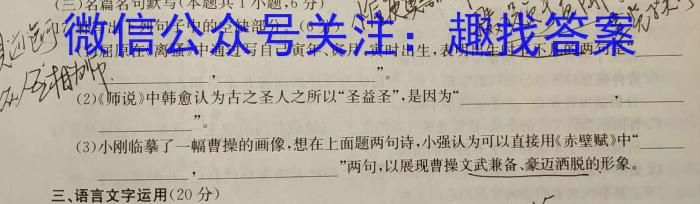 (三)名篇名句默写(本题共1小题,6分)
微信公众号关注:趣找答案
屈原在《离骚》中通过写自己寅年、寅月、寅时出生,表明
___,___”。
(2)《师说》中韩愈认为古之圣人之所以“圣益圣”,是因为“___,
___”。
(3)小刚临摹了一幅曹操的画像,想在上面题两句诗,小强认为可以直接用《赤壁赋》中“___
___,___”两句,以展现曹操文武兼备、豪迈洒脱的形象。
三、语言文字运用(20分)